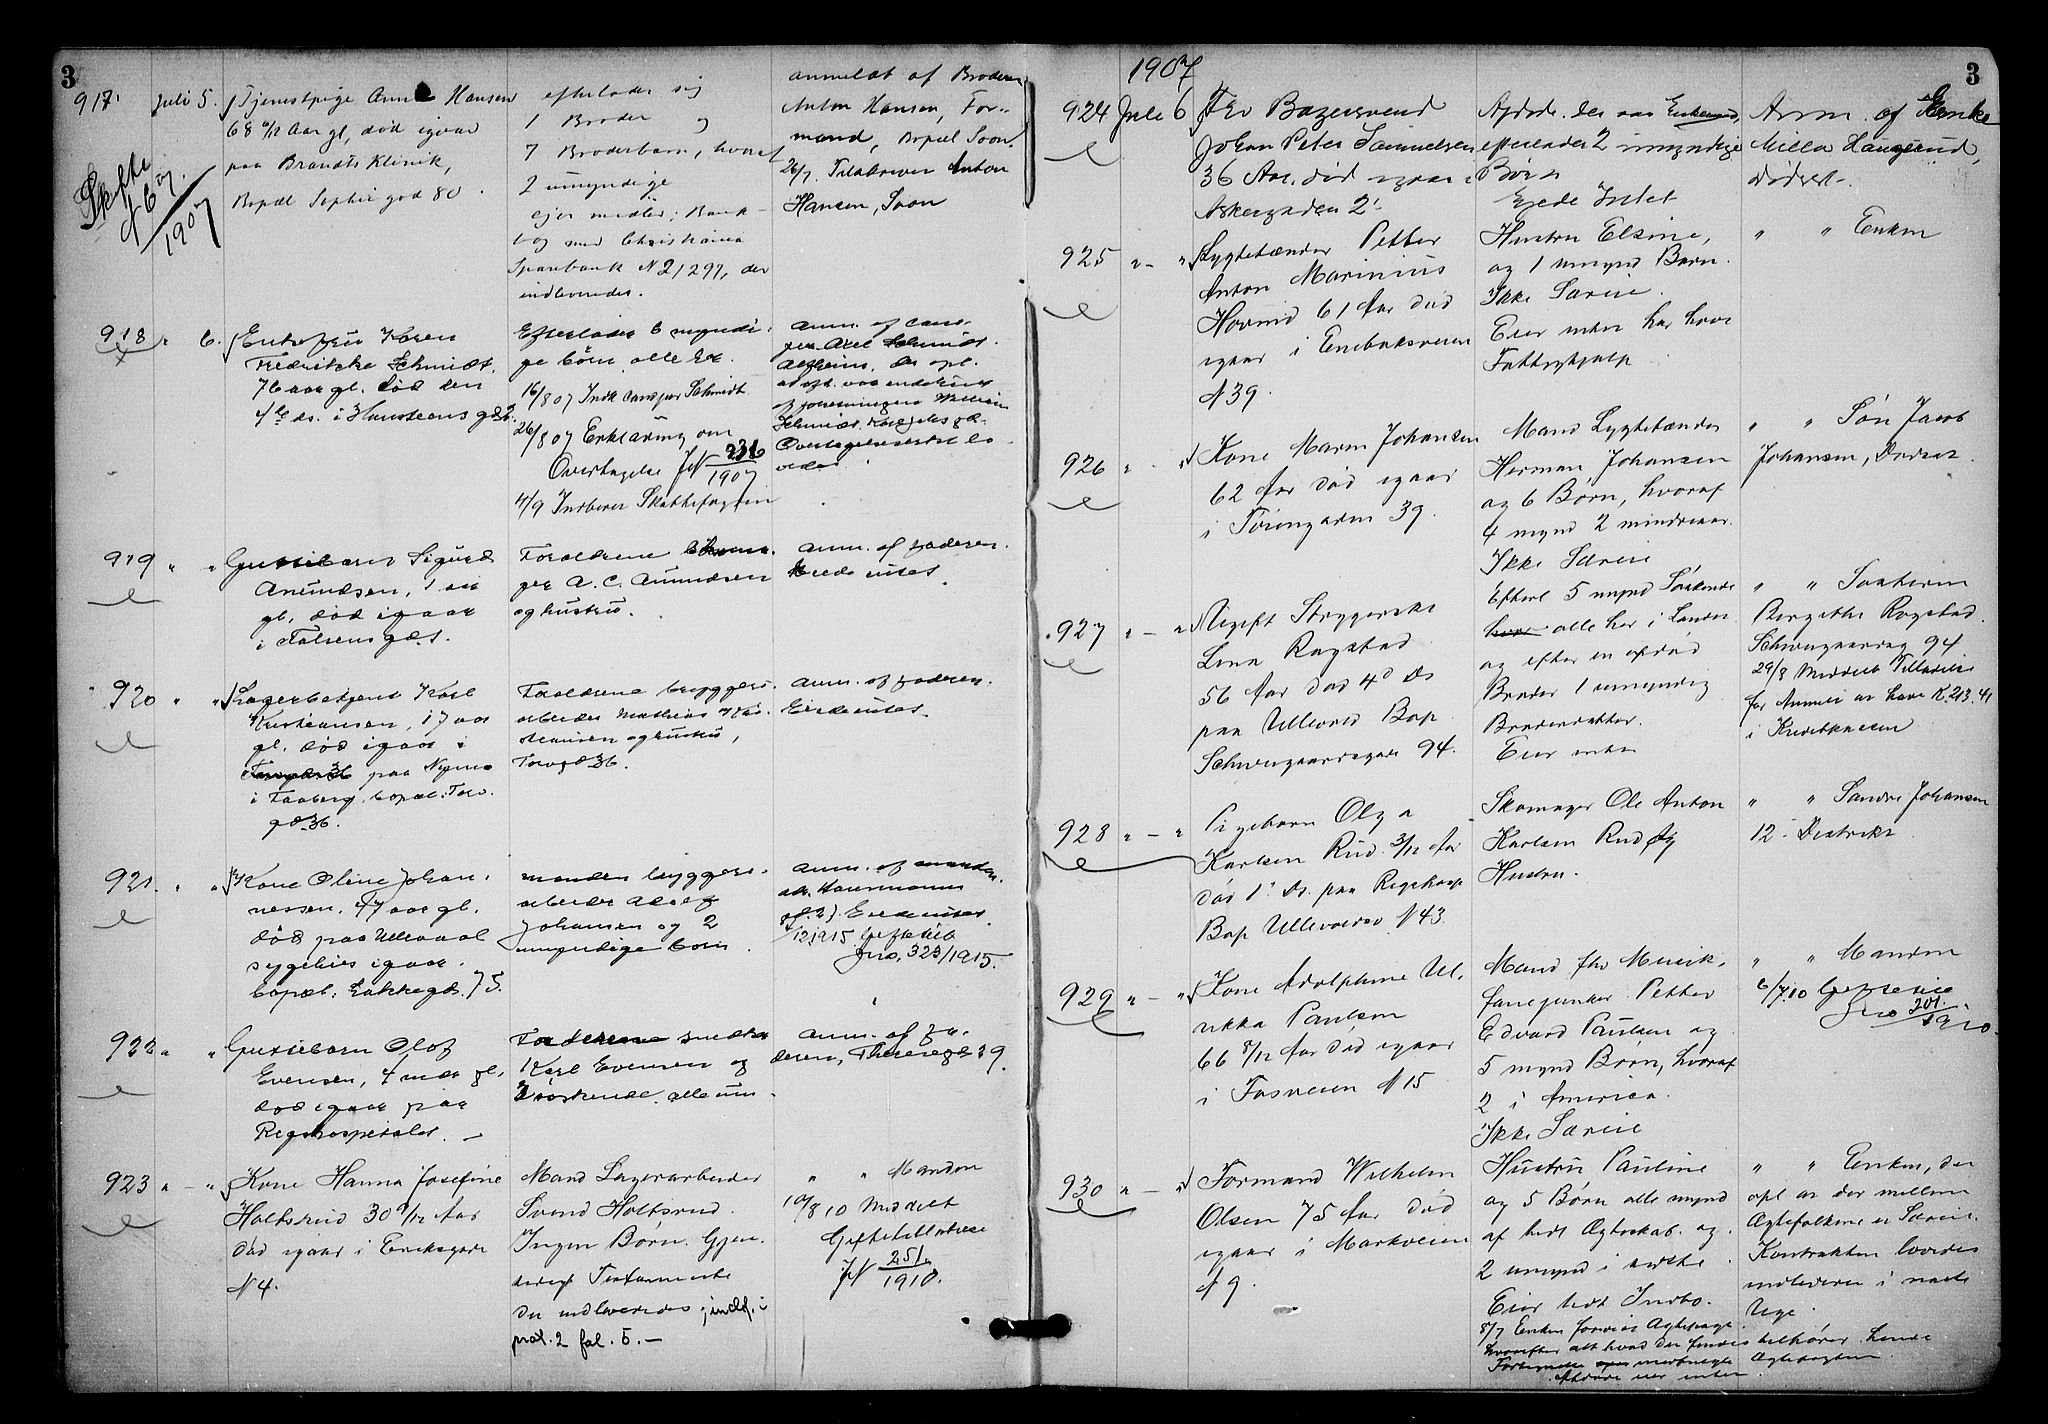 3
917.
Juli 5.
Tjenestpige Anne Hansen
68 6/12 Aar gl, død igaar
paa Brandts Klinik,
Bopæl Sophie gad 80.
Skifte
1907
efterlader sig
1 Broder og
7 Broderbørn, hvoraf
2 umyndige
ejer midler; Bank-
bog med Christiania
Sparebank N 21297, der
indleveredes.
anmeldt af Broderen
Anton Hansen, For-
mand, Bopæl Soon.
26/7. Anton
Hansen, Soon
918
" 6.
Enkefru Karen
Fredrikke Schmidt,
76 aar gl. død den
4de ds. i Hausteens gd 2.
Efterlader 6 myndi-
ge børn, alle her.
16/8 07 Indk Schmidt
26/8 07 Erklæring om
Overtagelse JN 236
1907
4/9 Indberet Skattefogden
anm. af
Axel Schmidt.
919 " "
Guttebarn Sigurd
Amundsen, 1 aar
gl. død igaar
i Falsens gd.
Forældrene
A. C. Amundsen
og hustru.
anm. af faderen.
Eiede intet.
920 " "
Karl
Kristiansen, 17 aar
gl. død igaar i
paa
i Faaberg, bopæl: Torv-
gd 36.
Forældrene bryggeri-
arbeider Mathias Kri-
stiansen og hustru,
Torvgd 36.
anm. af faderen.
Eiede intet.
921. " "
Kone Oline Johan-
nessen, 47 aar gl.
død paa Ullevaal
sygehus igaar.
bopæl: Lakkegd. 75.
manden bryggeri-
arbeider Adolf
Johansen og 2
umyndige børn.
anm. af manden.
Eiede intet.
Jno. 323/1915.
922 " "
Guttebarn Olof
Evensen, 4 mdr gl.
død igaar paa
Rigshospitalet. —
Forældrene
Karl Evensen og
søskende, alle um.
anm. af fa-
deren, Theresegd 39.
923 " - "
Kone Hanna Josefine
Holtsrud 30 9/12 Aar
død igaar i Eriksgade
N 4.
Mand Lagerarbeider
Svend Holtsrud.
Ingen Børn. Gjen-
sidigt Testamente
der indleveredes; indf. i
prot. 2 fol. 5. —
" " Manden
10/8 10 Meddelt
Giftetilladelse
JN 251
1910.
1907
3
924
Juli 6
Fhv Bagersvend
Johan Peter Samuelsen
36 Aar. død igaar i
Askergaden 2.
Afdøde. der var Enkemand,
efterlader 2 umyndige
Børn
Eiede Intet
Anm. af Enke
Milla Haugerud,
Dødsst.
925 " - "
Lygtetænder Petter
Anton Marinius
Hovind 61 Aar død
igaar i Enebakveien
N 39.
Hustru Elsine,
og 1 mynd Barn.
Ikke Særeie.
Eier intet har havt
Fattighjælp
" " Enken
926 " - "
Kone Maren Johansen
62 Aar død igaar
i Tøiengaden 39.
Mand Lygtetænder
Herman Johansen
og 6 Børn, hvoraf
4 mynd 2 mindreaar.
Ikke Særeie
" " Søn Jacob
Johansen, Dødsst.
927 " - "
Ugift Strygerske
Lina Rogstad
56 Aar død 4d Ds
paa Ullevold Bop
Schweigaardsgade 94.
Efterl 5 mynd Søskende
alle her i Landet
og efter en afdød
Broder 1 umyndig
Broderdatter.
Eier intet
" " Søsteren
Bergithe Rogstad
Schweigaardsg 94
29/8 Meddelt Tilladelse
for Anmeld at hæve Kr. 213.41
i Kreditkassen
928 " - "
Pigebarn Olga
Karlsen Rud 3/12 Aar
død 1' Ds. paa Rigshosp
Bop Ullevoldsv N 43.
Skomager Ole Anton
Karlsen Rud og
Hustru.
" " Sandra Johansen
12. Distrikt
929 " - "
Kone Adolphine Ul-
rikka Paulsen
66 8/12 Aar død igaar
i Fosveien N 15
Mand fhv Musik-
fanejunker Petter
Edvard Paulsen og
5 mynd Børn, hvoraf
2 i America.
Ikke Særeie
" " Manden
6/7 10
Jno 201
1910.
930 " - "
Formand Wilhelm
Olsen 75 Aar død
igaar i Markveien
N 9.
Hustru Pauline
og 5 Børn alle mynd
af tidl Ægteskab. og
2 umynd i sidste
Eier lidt Indbo.
8/7 Enken foreviser Ægtepagt
hvorefter alt hvad der findes tilhører hende
Ægtepagten
Afdøde eier intet.
" " Enken, der
opl at der mellem
Ægtefolkene er Særeie.
Kontrakten lovedes
indleveret i næste
Uge.